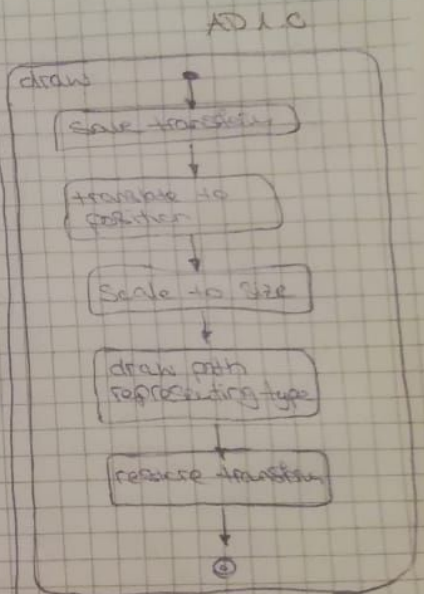 AD 1.0
draw
save transform
translate to
position
Scale to size
draw path
representing type
restore transform